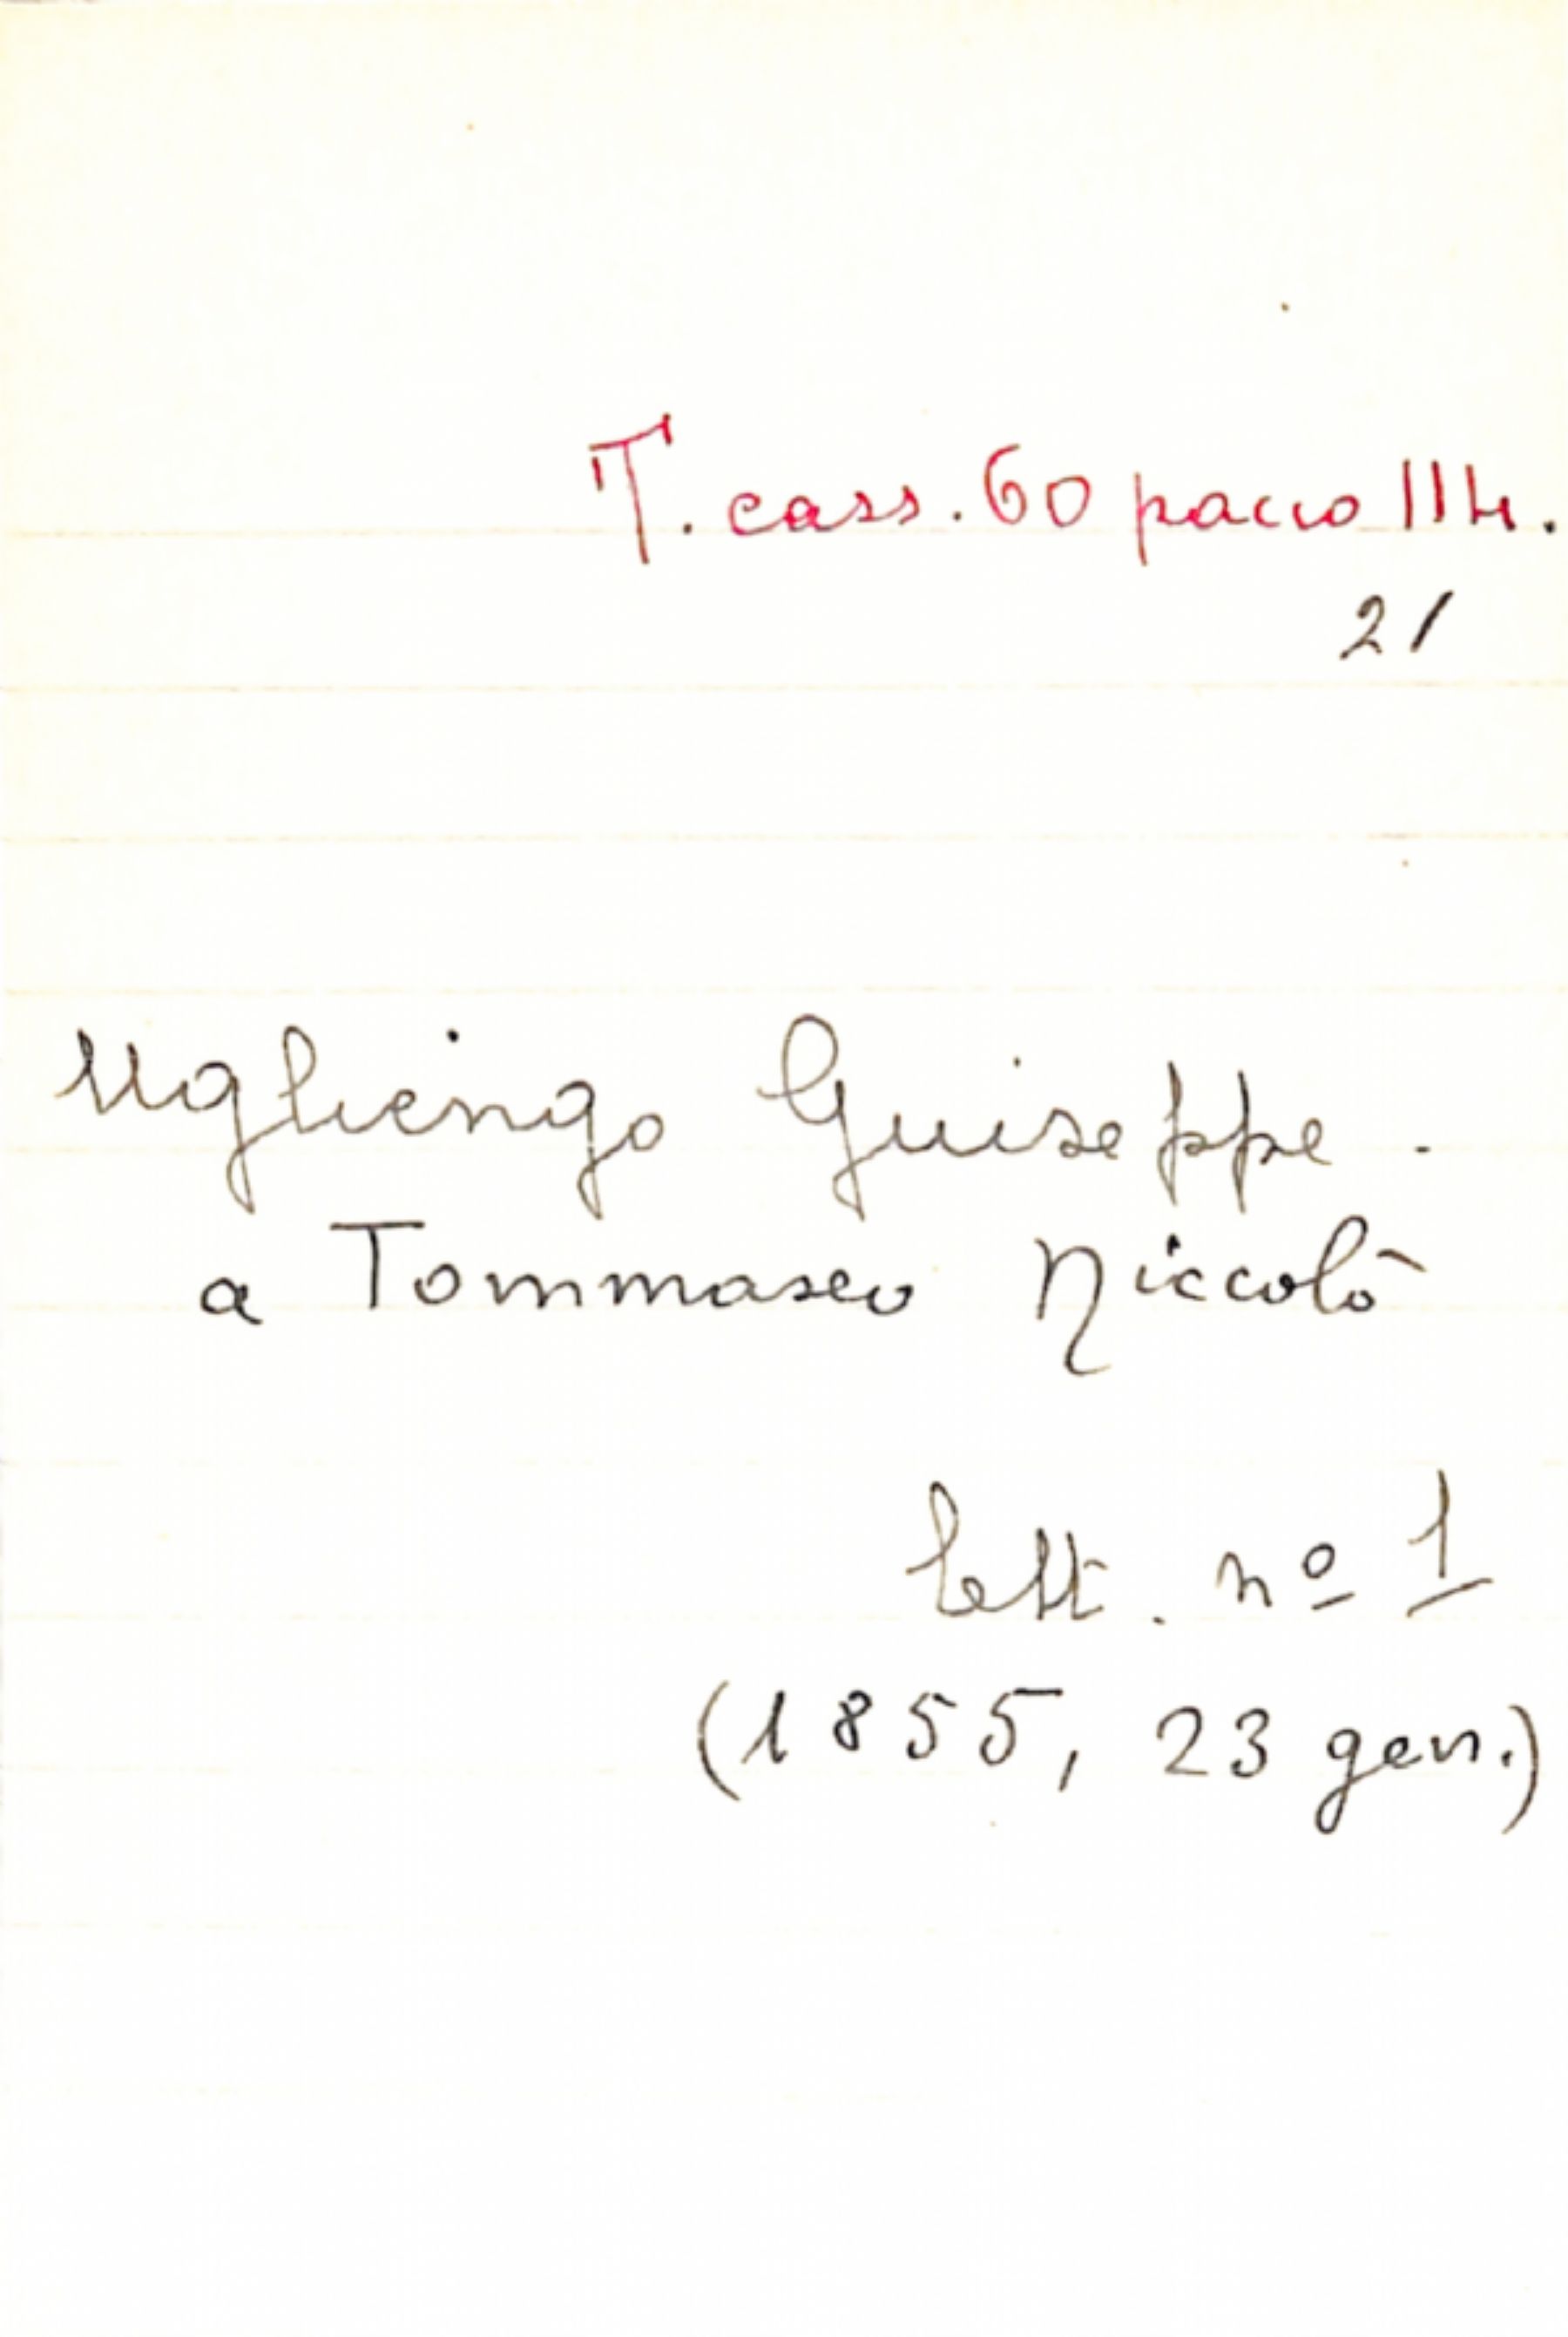 T. cass. 60 pacco 114.
21
Ugliengo Giuseppe.
a Tommaseo Niccolò
lett. nº 1
(1855, 23 gen.)